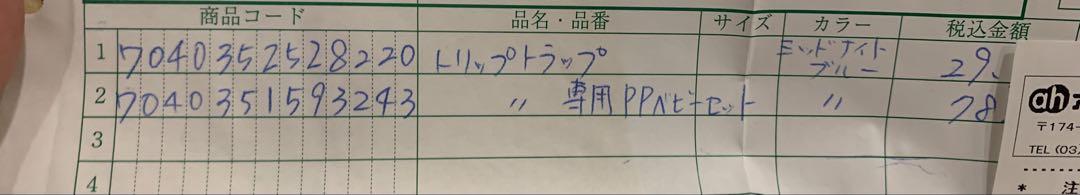 商品コード 品名・品番 サイズ カラー 税込金額
1 7040352528220 トリップトラップ ミッドナイトブルー 29.
2 7040351593243 〃 専用PPベビーセット 〃 78.
3
4
ah
〒174-
TEL (03
* 注